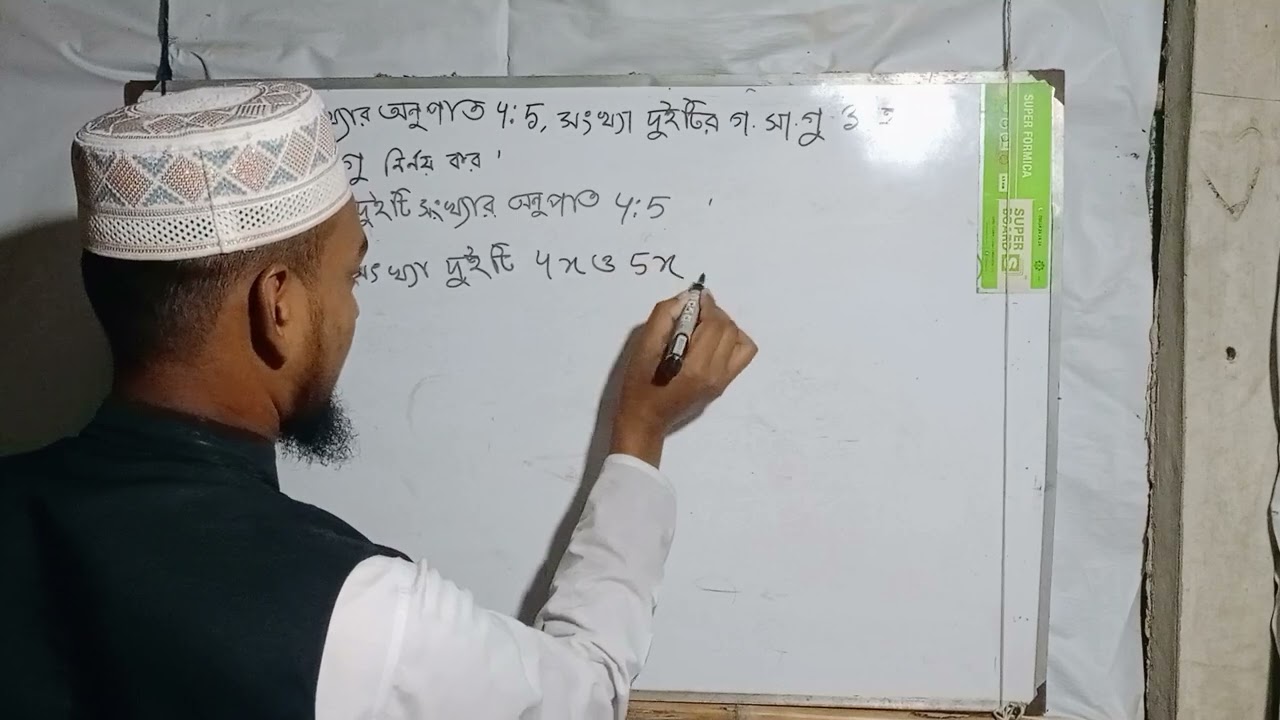 খ্যার অনুপাত 4:5, সংখ্যা দুইটির গ. সা. গু 3
গু নির্নয় কর
দুইটি সংখ্যার অনুপাত 4:5
সংখ্যা দুইটি 4x ও 5x
SUPER FORMICA
SUPER
BOARD